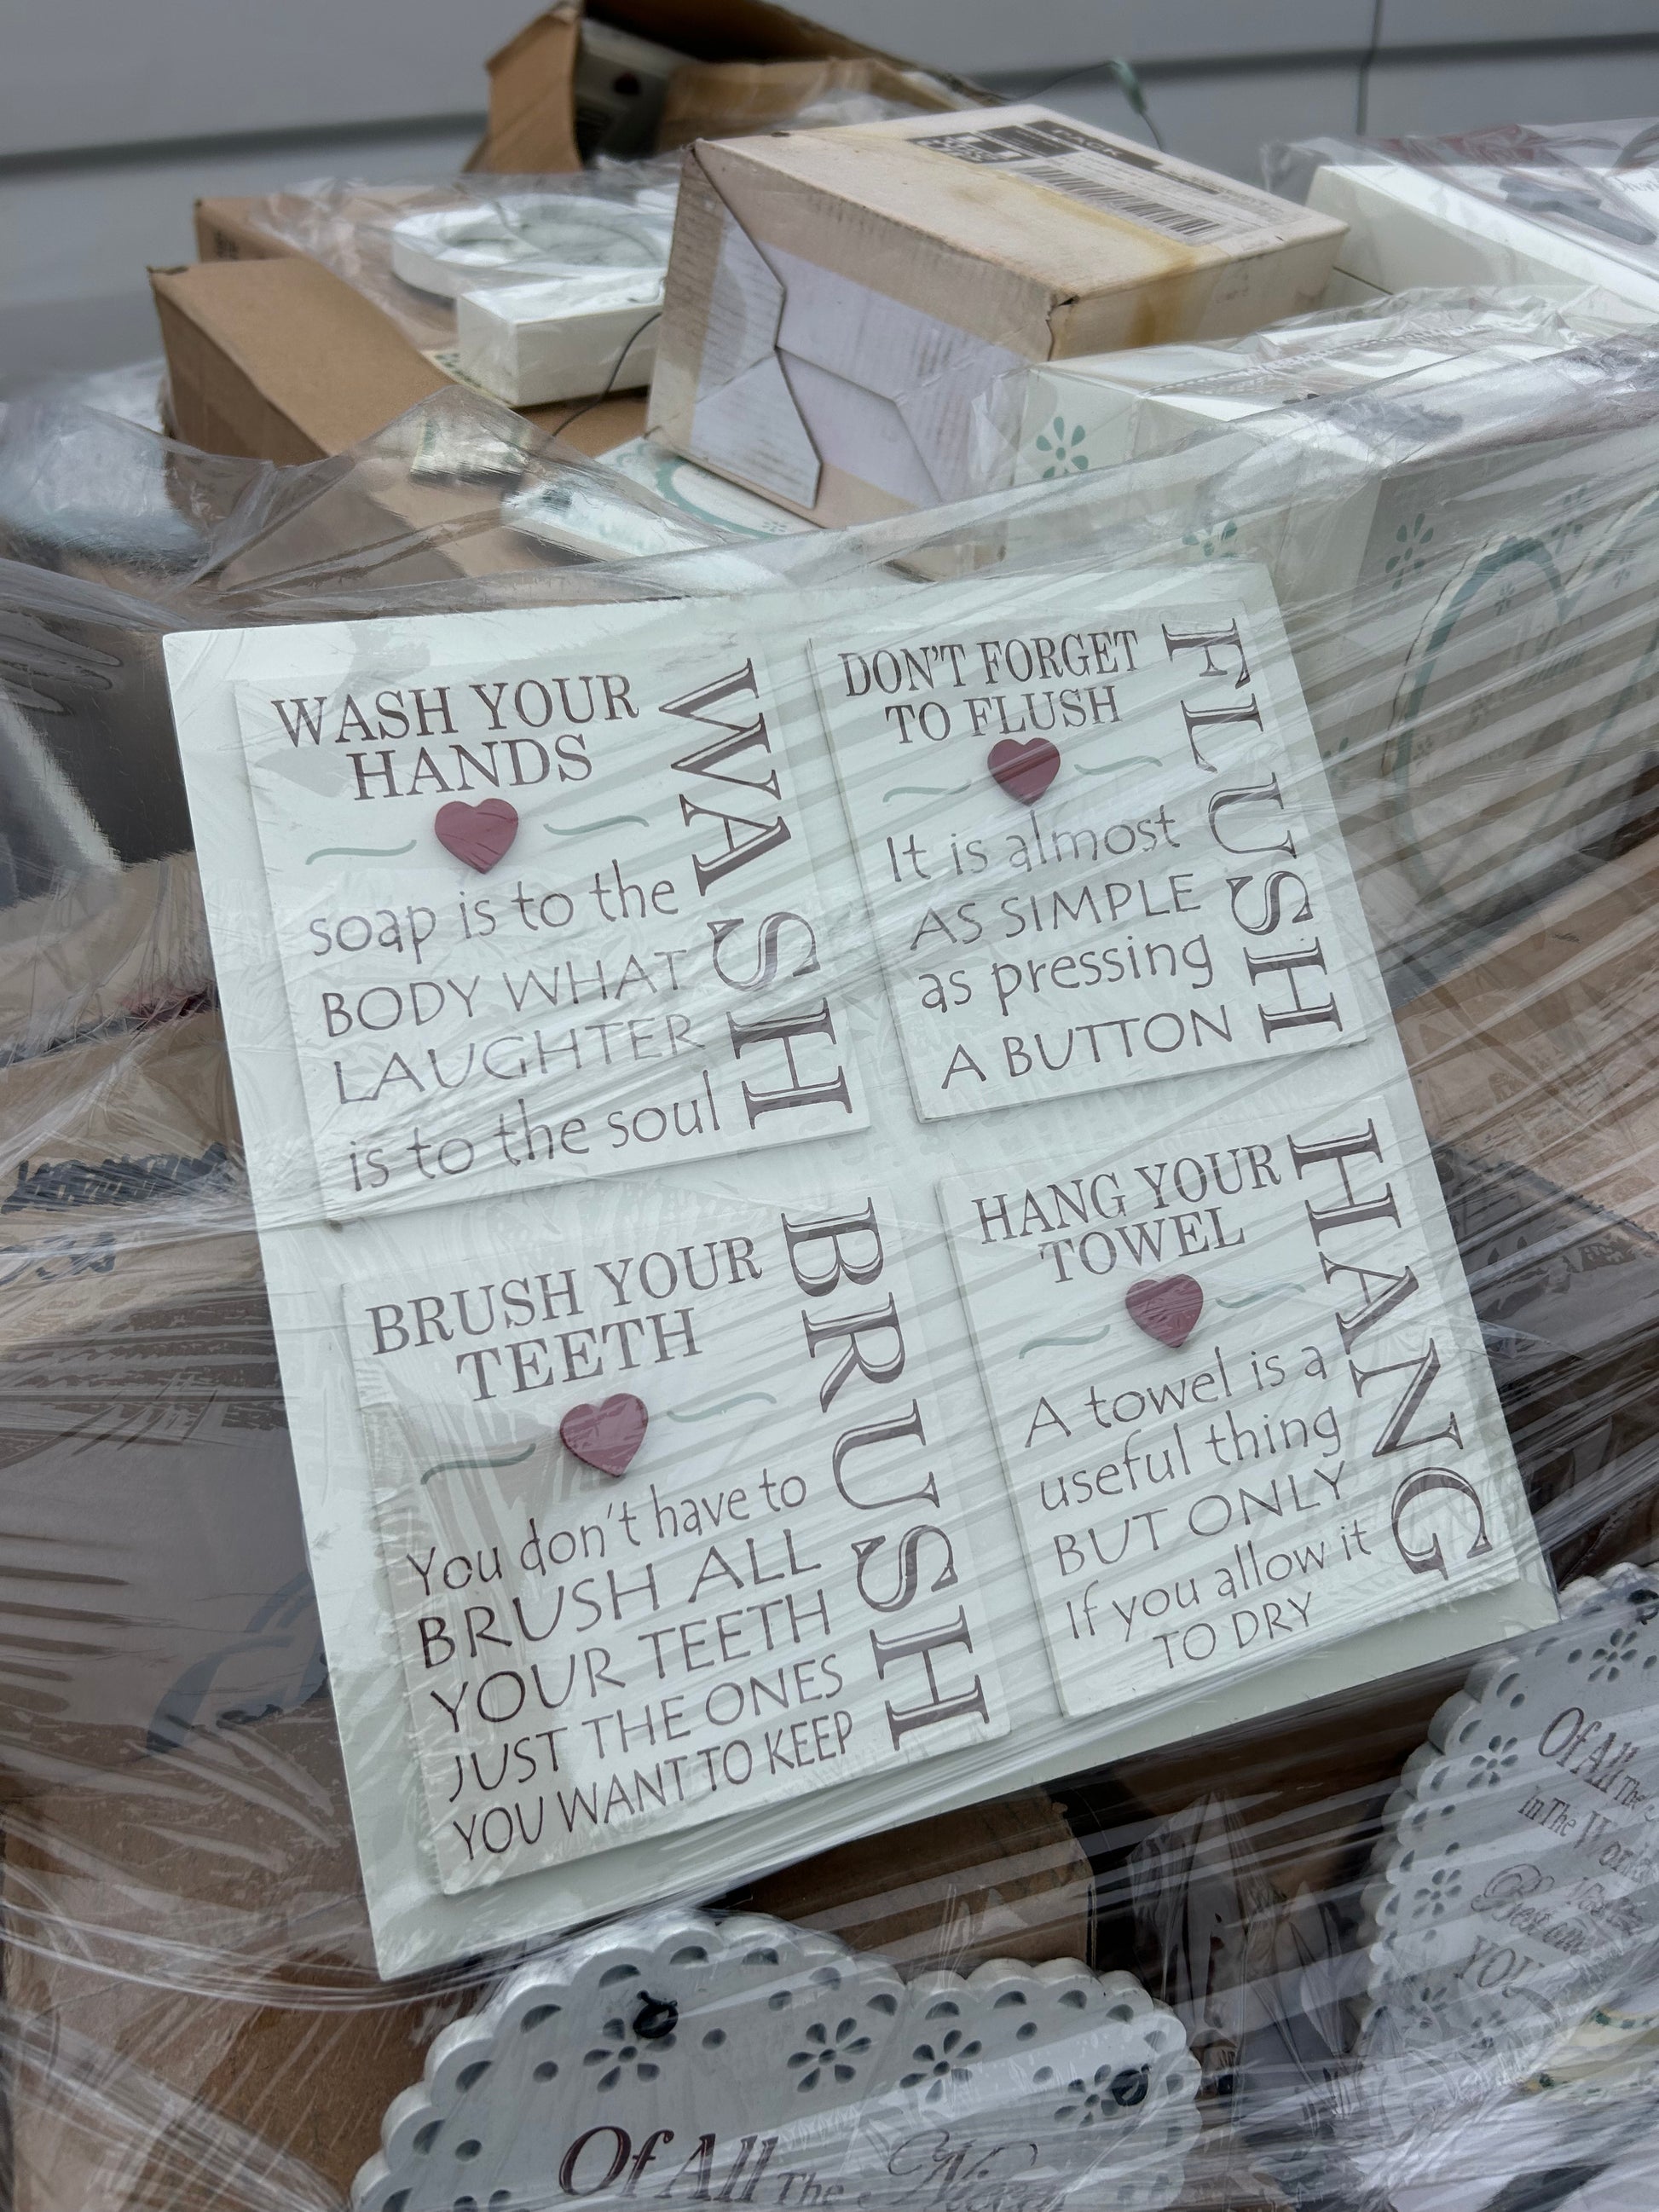 PACK
WASH YOUR
HANDS
soap is to the
BODY WHAT
LAUGHTER
is to the soul
WASH
DON'T FORGET
TO FLUSH
It is almost
AS SIMPLE
as pressing
A BUTTON
FLUSH
BRUSH YOUR
TEETH
You don't have to
BRUSH ALL
YOUR TEETH
JUST THE ONES
YOU WANT TO KEEP
BRUSH
HANG YOUR
TOWEL
A towel is a
useful thing
BUT ONLY
If you allow it
TO DRY
HANG
Of All The
in The
YOU
Of All The